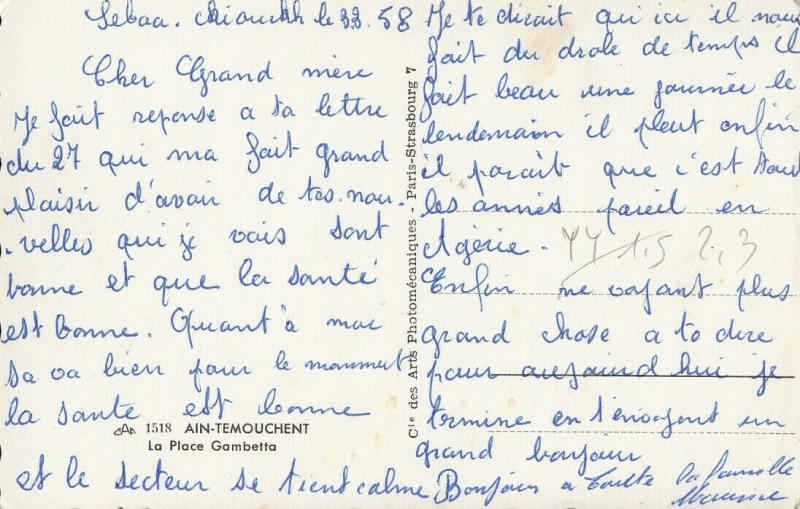 Sebaa. Chioukh le 33. 58
Cher Grand mère
Je fait reponse a ta lettre
du 27 qui ma fait grand
plaisir d'avoir de tes. nou.
.velles qui je vois sont
bonne et que la santé
est bonne. Quant à moi
sa va bien pour le momment
la sante est bonne
et le secteur se tient calme
1518 AIN-TEMOUCHENT
La Place Gambetta
Cie des Arts Photomécaniques - Paris-Strasbourg 7
Je te dirait qu'ici il nous
fait du drole de temps il
fait beau une journée le
lendemain il pleut enfin
il parait que c'est tout
les années pareil en
Algérie.
Enfin ne voyant plus
grand chose a te dire
pour aujourd hui je
termine en t'envoyant un
grand bonjour
Bonjour a toute la famille
Maurice